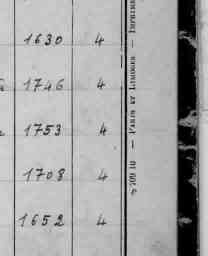 1630 4
1746 4
1753 4
1708 4
1652 4
709 10 — PARIS ET LIMOGES — IMPRIME